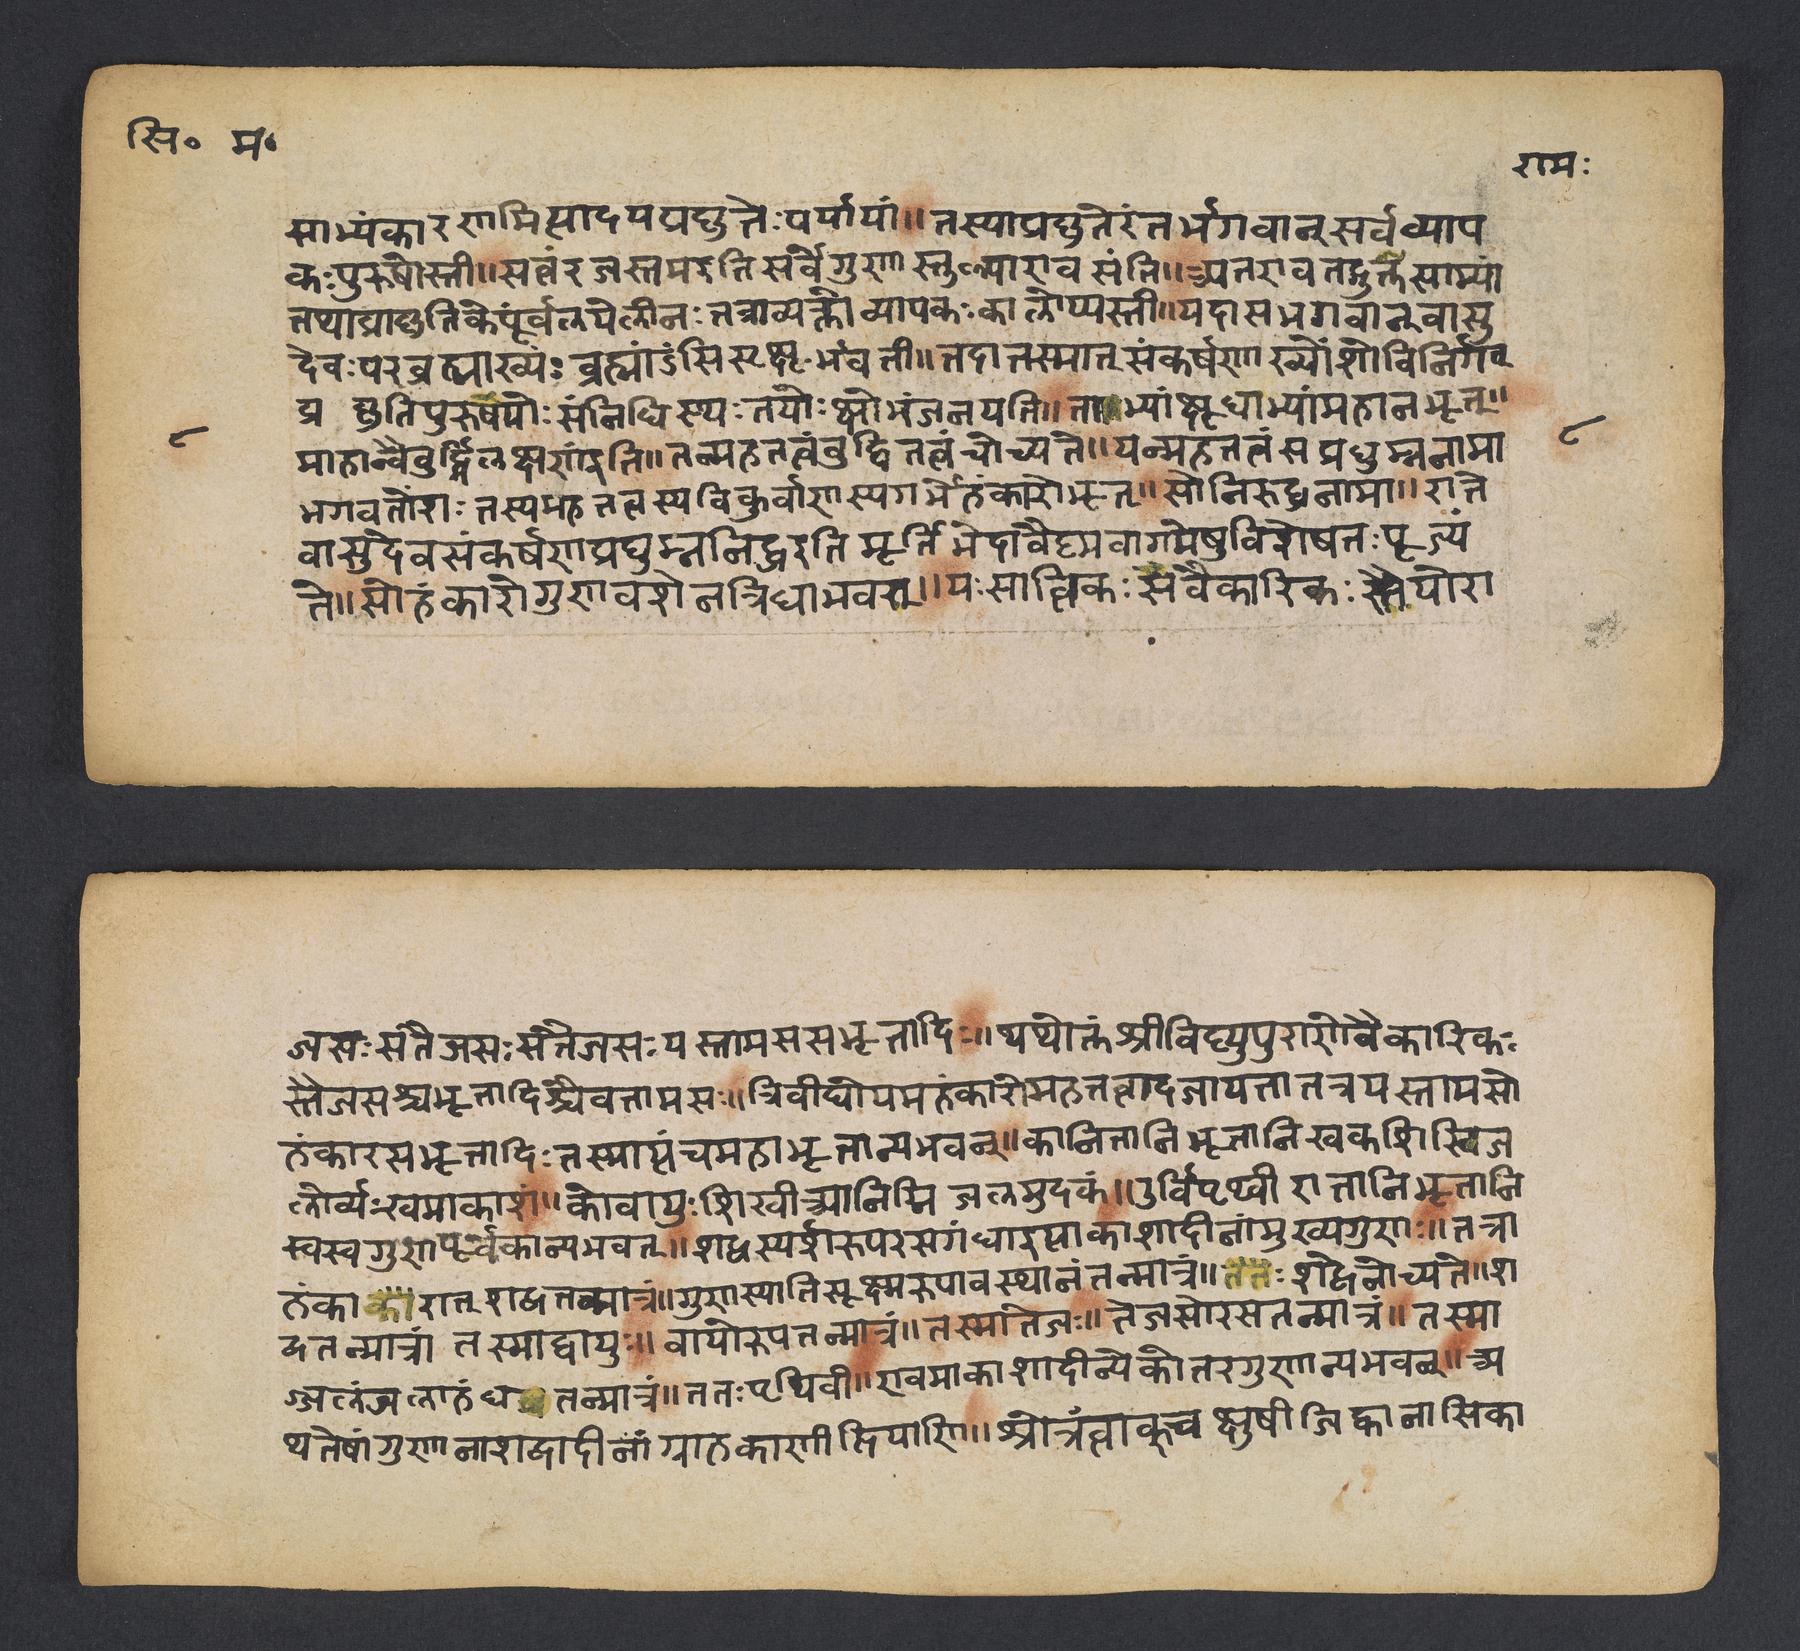 सि॰ म॰
रामः
साम्यंकारणामित्पादयप्रघुतेःपर्यायां॥तस्याप्रघुतेरंतर्भगवान्सर्वव्याप
कःपुरुषोस्ती॥सत्वंरजस्तमइतिसर्वेगुणास्तुल्याएवसंति॥अतएवतद्गुतंसाम्यां
तथाप्राघुतिकेपूर्वलयेलीनःतत्राव्यक्तोव्यापकःकालोप्यस्ती॥यदासभगवान्वासु
देवःपरब्रह्माख्यंःब्रह्मांडंसिसृक्षृर्भवती॥तदातस्मात्संकर्षणाख्योंशोविनिर्गत्
प्र घुतिपुरुषयोःसंनिधिस्यःतयोःक्षोभंजनयति॥ताभ्यांक्षृधाभ्यांमहानभृत्॥
माहान्वैबुर्द्धिलक्षणंइति॥तन्महतत्वंबुद्धितत्वंचोच्यते॥यन्महतत्वंसप्रघुम्ननामा
भगवतोंशःतस्यमहतत्वस्यविकुर्वाणस्यगर्भेहंकारोभृत्॥सोनिरुद्धनामा॥एते
वासुदेवसंकर्षणप्रघुम्ननिद्धइतिमृर्तिभेदावैह्मवागमेषुविशेषतःपृज्यं
ते॥सोहंकारोगुणवशेनत्रिधाभवत्॥यःसात्विकःसवैकारिकःस्तैयोरा
८
८
जसःसतैजसःसतैजसःयस्तामससभृतादिः॥यथोक्तंश्रीविह्मुपुराणेवैकारिकः
स्तैजसश्चभृतादिश्चैवतामसः॥त्रिवीधोयमहंकारोमहतत्वादजायत्तातत्रयस्तामसो
हंकारसभृत्तादिःतस्मात्पंचमहाभृतान्यभवन्॥कानितानिभृतानिखकशिखिज
लोर्व्यःखमाकाशं॥कोवायुःशिखीअानिग्नि जलमुदकं॥उर्विपृथ्वी एतानिभृतानि
स्वस्वगुणपूर्वकान्यभवत्॥शद्बस्पर्शरुपरसगंधाइत्याकाशादीनांमुख्यगुणाः॥तत्रा
हंका कारात्शद्बतन्मात्रं॥गुणस्यातिसूक्ष्मरुपावस्थानंतन्मात्रं॥ततःशद्बेनोच्यते॥श
द्बतन्मात्रां तस्माद्वायुः॥वायोरुपतन्मात्रं॥तस्मातेजः॥तेजसोरसतन्मात्रं॥तस्मा
ज्जलंजलाहंधतन्मात्रं॥ततःपृथिवी॥एवमाकाशादीन्येकोतरगुणान्यभवन्॥अ
थतेषांगुणानाशद्बादीनांग्राहकाणींद्रियाणि॥श्रोत्रंत्वाक्चक्षुषीजिह्वानासिका